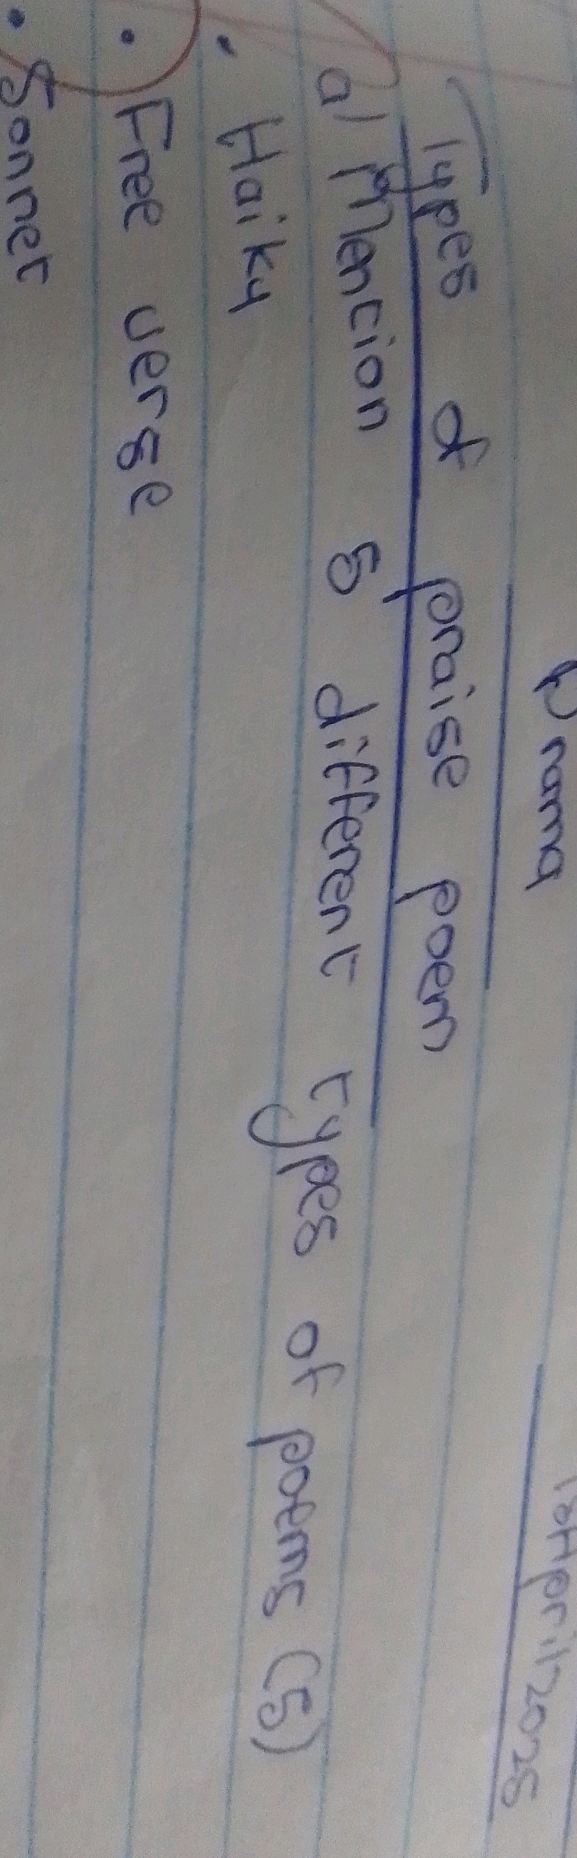 Drama
April 2025
Types of praise poem
a) Mention 5 different types of poems (5)
• Haiky
• Free verse
• Sonnet